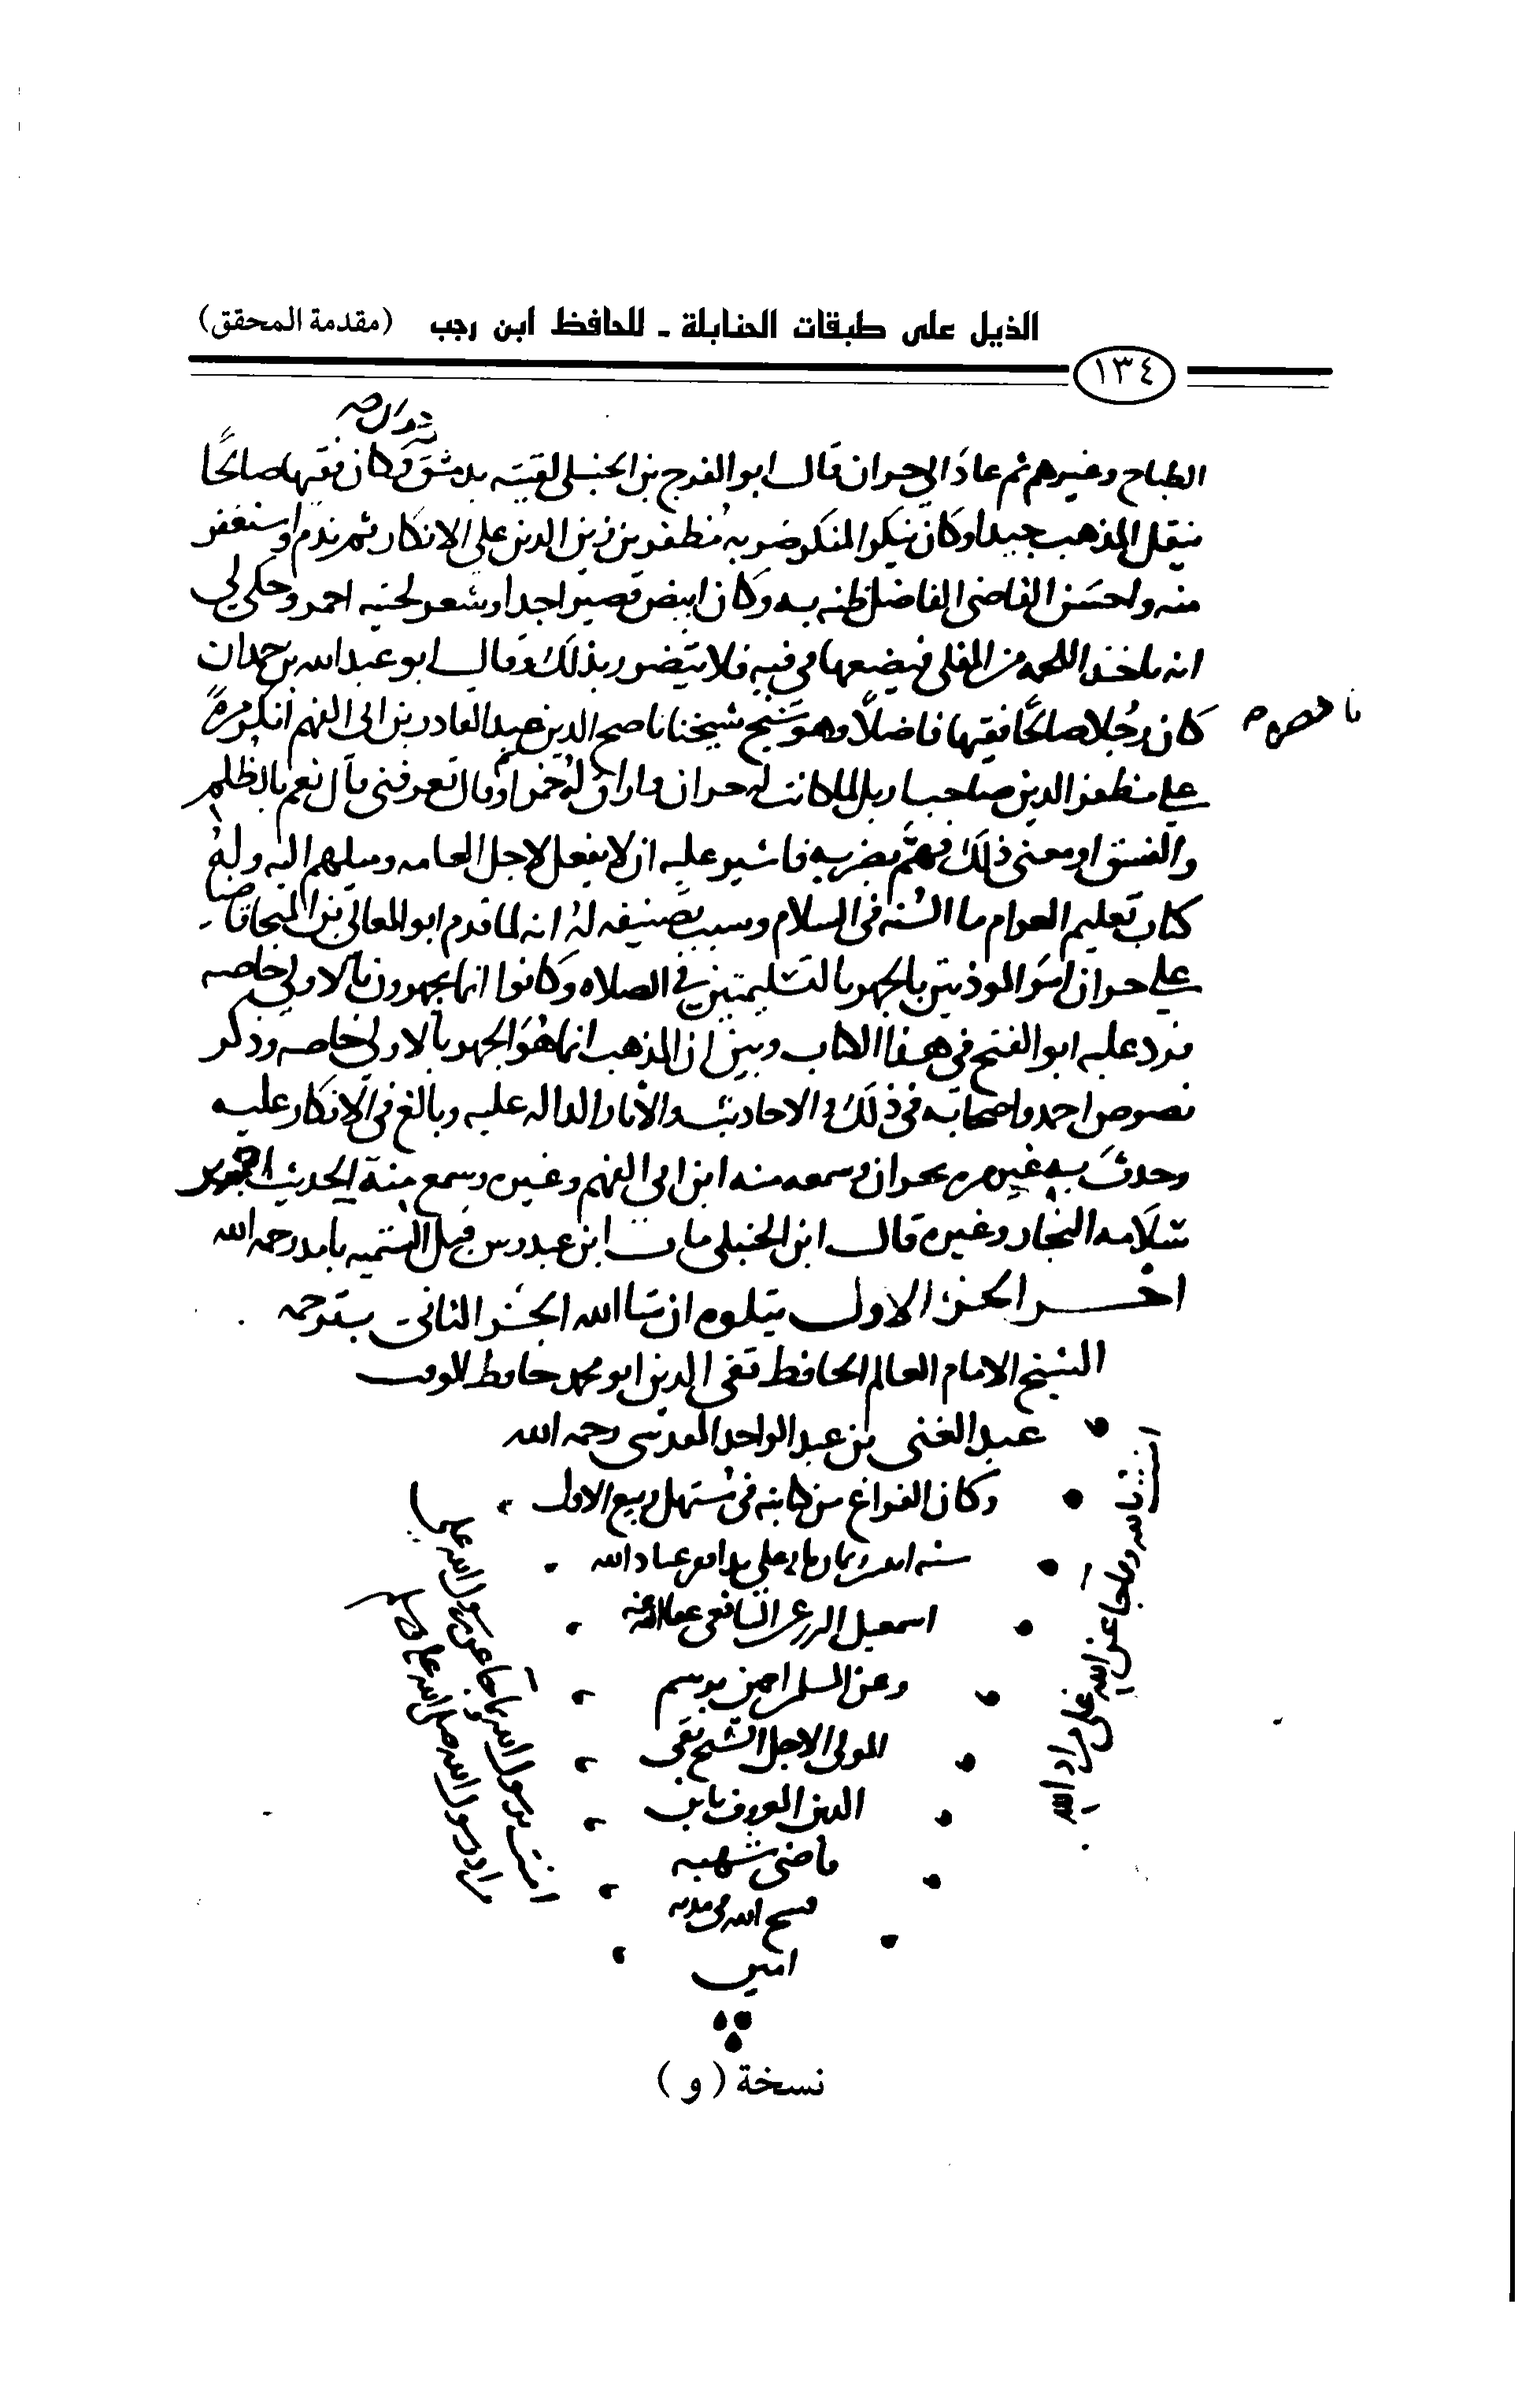 الذيل على طبقات الحنابلة - للحافظ ابن رجب (مقدمة المحقق)
١٣٤
الطباخ وغيرهم ثم عاد الى حران قال ابو الفرج بن الحنبلى لقيته بدمشق وكان فقيها صالحًا
ينقل المذهب جيدا وكان ينكر المنكر ضربه مُظفر بن زين الدين على الانكار ثم ندم واستغفر
منه واحسَن القاضى الفاضل ظنه به وكان ابيض قصيرا جدا وشعر لحيته احمر وحكى لى
انه ياخذ اللحمة من المقلى فيضعها فى فيه فلا يتضرر بذلك وقال ابو عبد الله بن حمدان
كان رجُلا صالحًا فقيها فاضلاً وهو شيخ شيخنا ناصح الدين عبد القادر بن ابى الفهم انكر مرةً
على مظفر الدين صاحب اربل لما كانت له حران واراق لهُ خمرا وقال تعرفنى قال نعم بالظلم
والفسق او معنى ذلك فهمَّ بضربه فاشير عليه ان لا يفعل لاجل العامه وميلهم اليه ولهُ
كتاب تعليم العوام ما السُنه فى السلام وسبب تصنيفه لهُ انه لما قدم ابو المعالى بن المنجا قاضيا
على حران امر الموذنين بالجهر بالتسليمتين فى الصلاه وكانوا انما يجهرون بالاولى خاصه
فرد عليه ابو الفتح فى هذا الكتاب وبين ان المذهب انما هُوَ الجهر بالاولى خاصه وذكر
نصوص احمد واصحابه فى ذلك والاحاديث والاثار الداله عليه وبالغ فى الانكار عليه
وحدث به غير مره بحران وسمعه منه ابن ابى الفهم وغيره وسمع منه الحديث
سَلامه النجار وغيره قال ابن الحنبلى مات ابن عبدوس قبل الستميه بامد رحمه الله
اخر الجزء الاول يتلوه ان شا الله الجزء الثانى بترجمه
الشيخ الامام العالم الحافظ تقى الدين ابو محمد حافظ الوقت
عبد الغنى بن عبد الواحد المقدسى رحمه الله
وكان الفراغ من كتابته فى مُستهل ربيع الاول
سنه على يد افقر عباد الله
اسمعيل الزرعى الشافعى عفا الله عنه
وعن المسلمين اجمعين برسم
المولى الاجل الشيخ تقى
الدين المعروف بابن
قاضى شهبه
فسح الله فى مدته
امين
امنت بالله وبما جا عن الله على مراد الله
امنت برسول الله وبما جا عن رسول الله على
مراد رسول الله صلى الله عليه وسلم
نسخة ( و )